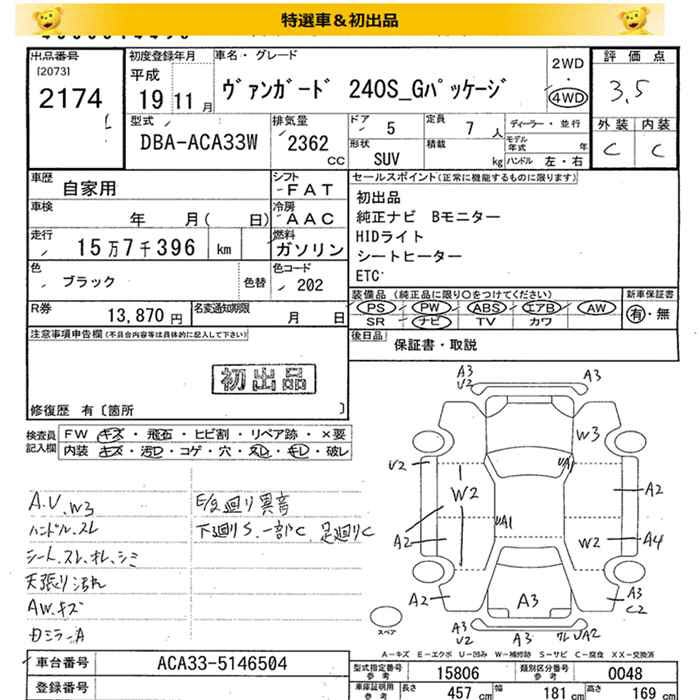 特選車&初出品
出品番号
[2073]
2174
初度登録年月
平成
19 11月
車名・グレード
ヴァンガード 240S_Gパッケージ
2WD
・
4WD
評価点
3.5
外装 内装
C C
型式
DBA-ACA33W
排気量
2362
CC
ドア
5
形状
SUV
定員
7 人
積載
kg
ディーラー・並行
モデル
年式 年
ハンドル 左・右
車歴
自家用
シフト
FAT
車検
年 月( 日)
冷房
AAC
走行
15万7千396 km
燃料
ガソリン
色
ブラック
色替
色コード
202
R券
13,870 円
名変通知期限
月 日
セールスポイント(正常に機能するものに限ります)
初出品
純正ナビ Bモニター
HIDライト
シートヒーター
ETC
装備品(純正品に限り○をつけてください)
PS PW ABS エアB AW
SR ナビ TV カワ
新車保証書
有・無
後日品
保証書・取説
注意事項申告欄(不具合内容等は具体的に記入して下さい)
初出品
修復歴 有〔箇所 〕
検査員
記入欄
FW キズ・飛石・ヒビ割・リペア跡・×要
内装 キズ・汚レ・コゲ・穴・スレ・キレ・破レ
A.U.W3
ハンドル.スレ
シート.スレ.オレ.シミ
天張り汚れ
AW.キズ
カミラ-A
E/g廻り異音
下廻りS.一部C 足廻りC
A3
U2
A3
W3
U2
W2
UA1
UA1
A2
A2
W2
A4
A2
A3
A3
C2
A3
U2
A3
UA2
スペア
A-キズ E-エクボ U-凹み W-補修跡 S-サビ C-腐食 XX-交換済
車台番号
ACA33-5146504
登録番号
型式指定番号
参考
15806
類別区分番号
参考
0048
車庫証明用
参考
長さ
457 cm
幅
181 cm
高さ
169 cm